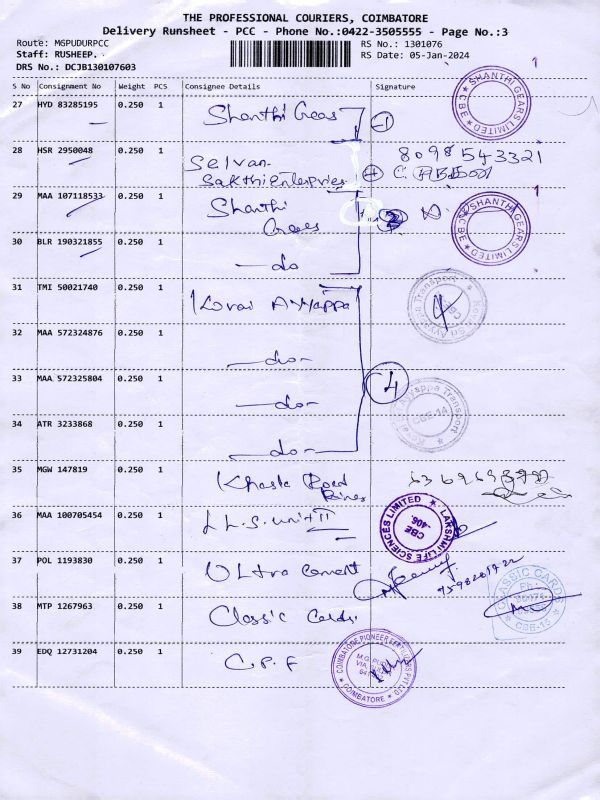 THE PROFESSIONAL COURIERS, COIMBATORE
Delivery Runsheet - PCC - Phone No.:0422-3505555 - Page No.:3
Route: MGPUDURPCC
Staff: RUSHEEP.
DRS No.: DCJB130107603
RS No.: 1301076
RS Date: 05-Jan-2024
S No Consignment No Weight PCS Consignee Details Signature
27 HYD 83285195 0.250 1 Shanthi Gears 1
SHANTHI GEARS LIMITED CBE
28 HSR 2950048 0.250 1 Selvan 8098543321
Sakthi Enterprises
29 MAA 107118533 0.250 1 Shanthi 2
Gears
SHANTHI GEARS LIMITED CBE
30 BLR 190321855 0.250 1 -do-
31 TMI 50021740 0.250 1 Kovai Ayyappa
Kovai Sri Ayyappa Transport
32 MAA 572324876 0.250 1 -do-
33 MAA 572325804 0.250 1 -do- 4
34 ATR 3233868 0.250 1 -do-
Ayyappa Transport CBE-14
35 MGW 147819 0.250 1 Road
36 MAA 100705454 0.250 1 L.L.S. Unit II
LAKSHMI LIFE SCIENCES LIMITED CBE -406.
37 POL 1193830 0.250 1 Ultra Cement
38 MTP 1267963 0.250 1 Classic Cards
CLASSIC CARDS CBE-15
39 EDQ 12731204 0.250 1 C.P.F
COIMBATORE PIONEER FERTILIZERS PVT LTD COIMBATORE